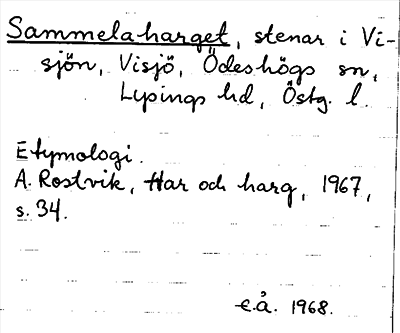 Sammelaharget, stenar i Vi-
sjön, Visjö, Ödeshögs sn,
Lysings hd, Östg. l.
Etymologi.
A. Rostvik, Har och harg, 1967,
s. 34.
E.Å. 1968.